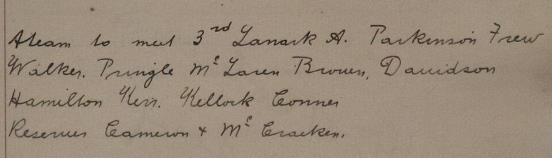 A team to meet 3rd Lanark A. Parkinson Frew
Walker. Pringle McLaren Brown, Davidson
Hamilton Kerr. Kellock Conner
Reserves Cameron & McCracken.